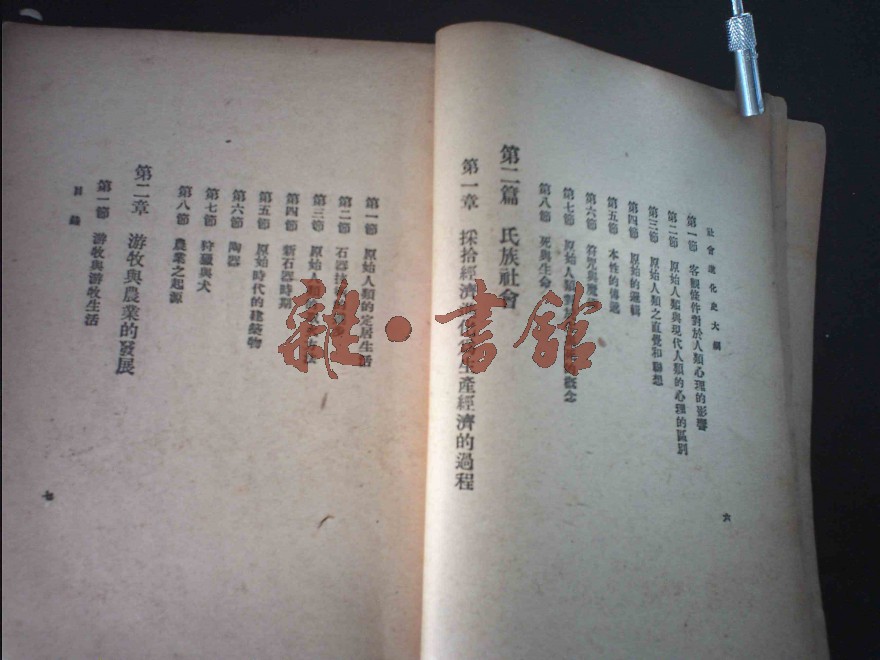 社會進化史大綱
第一節 客觀條件對於人類心理的影響
第二節 原始人類與現代人類的心理的區別
第三節 原始人類之直覺和聯想
第四節 原始的邏輯
第五節 本性的傳遞
第六節 符咒與魔
第七節 原始人類對 概念
第八節 死與生命
第二篇 氏族社會
第一章 採拾經濟 生產經濟的過程
六
第一節 原始人類的定居生活
第二節 石器
第三節 原始人
第四節 新石器時期
第五節 原始時代的建築物
第六節 陶器
第七節 狩獵與犬
第八節 農業之起源
第二章 游牧與農業的發展
第一節 游牧與游牧生活
目錄
七
雜·書館